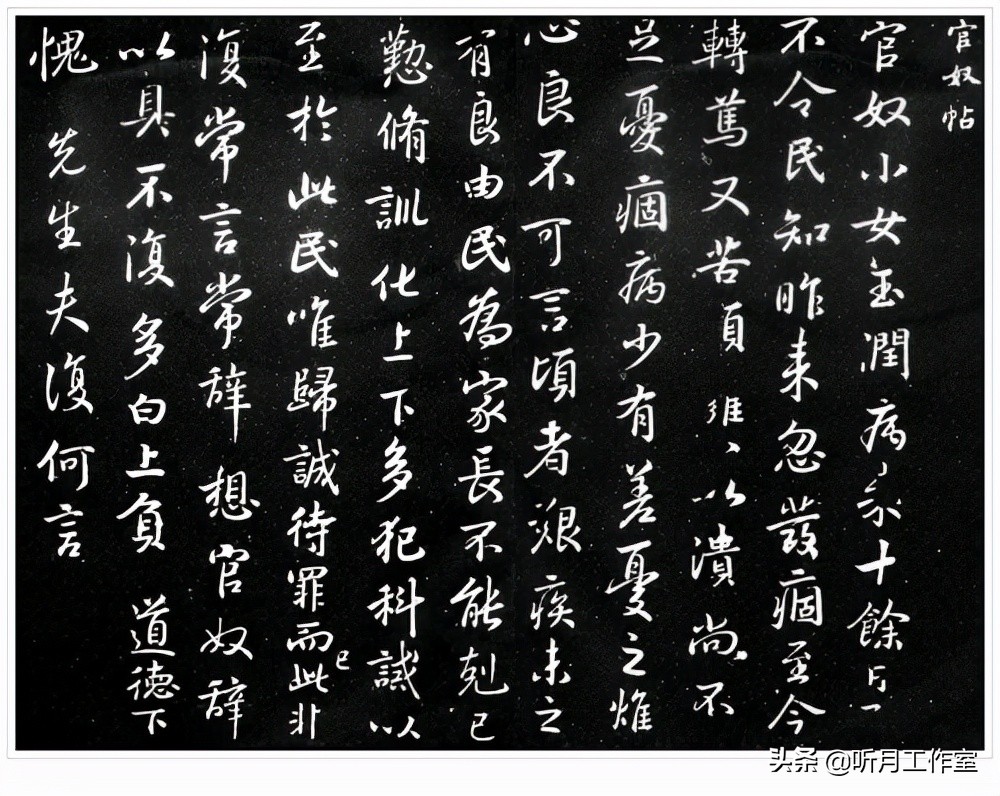 官奴帖
官奴小女玉潤病來十餘日
不令民知昨來忽發痼至今
轉篤又苦以潰尚不
足憂痼病少有差憂之燋
心良不可言頃者艱疾未之
有良由民為家長不能剋己
懃脩訓化上下多犯科誡以
至於此民唯歸誠待罪而已此非
復常言常辭想官奴辭
以具不復多白上負 道德下
愧 先生夫復何言
头条 @听月工作室